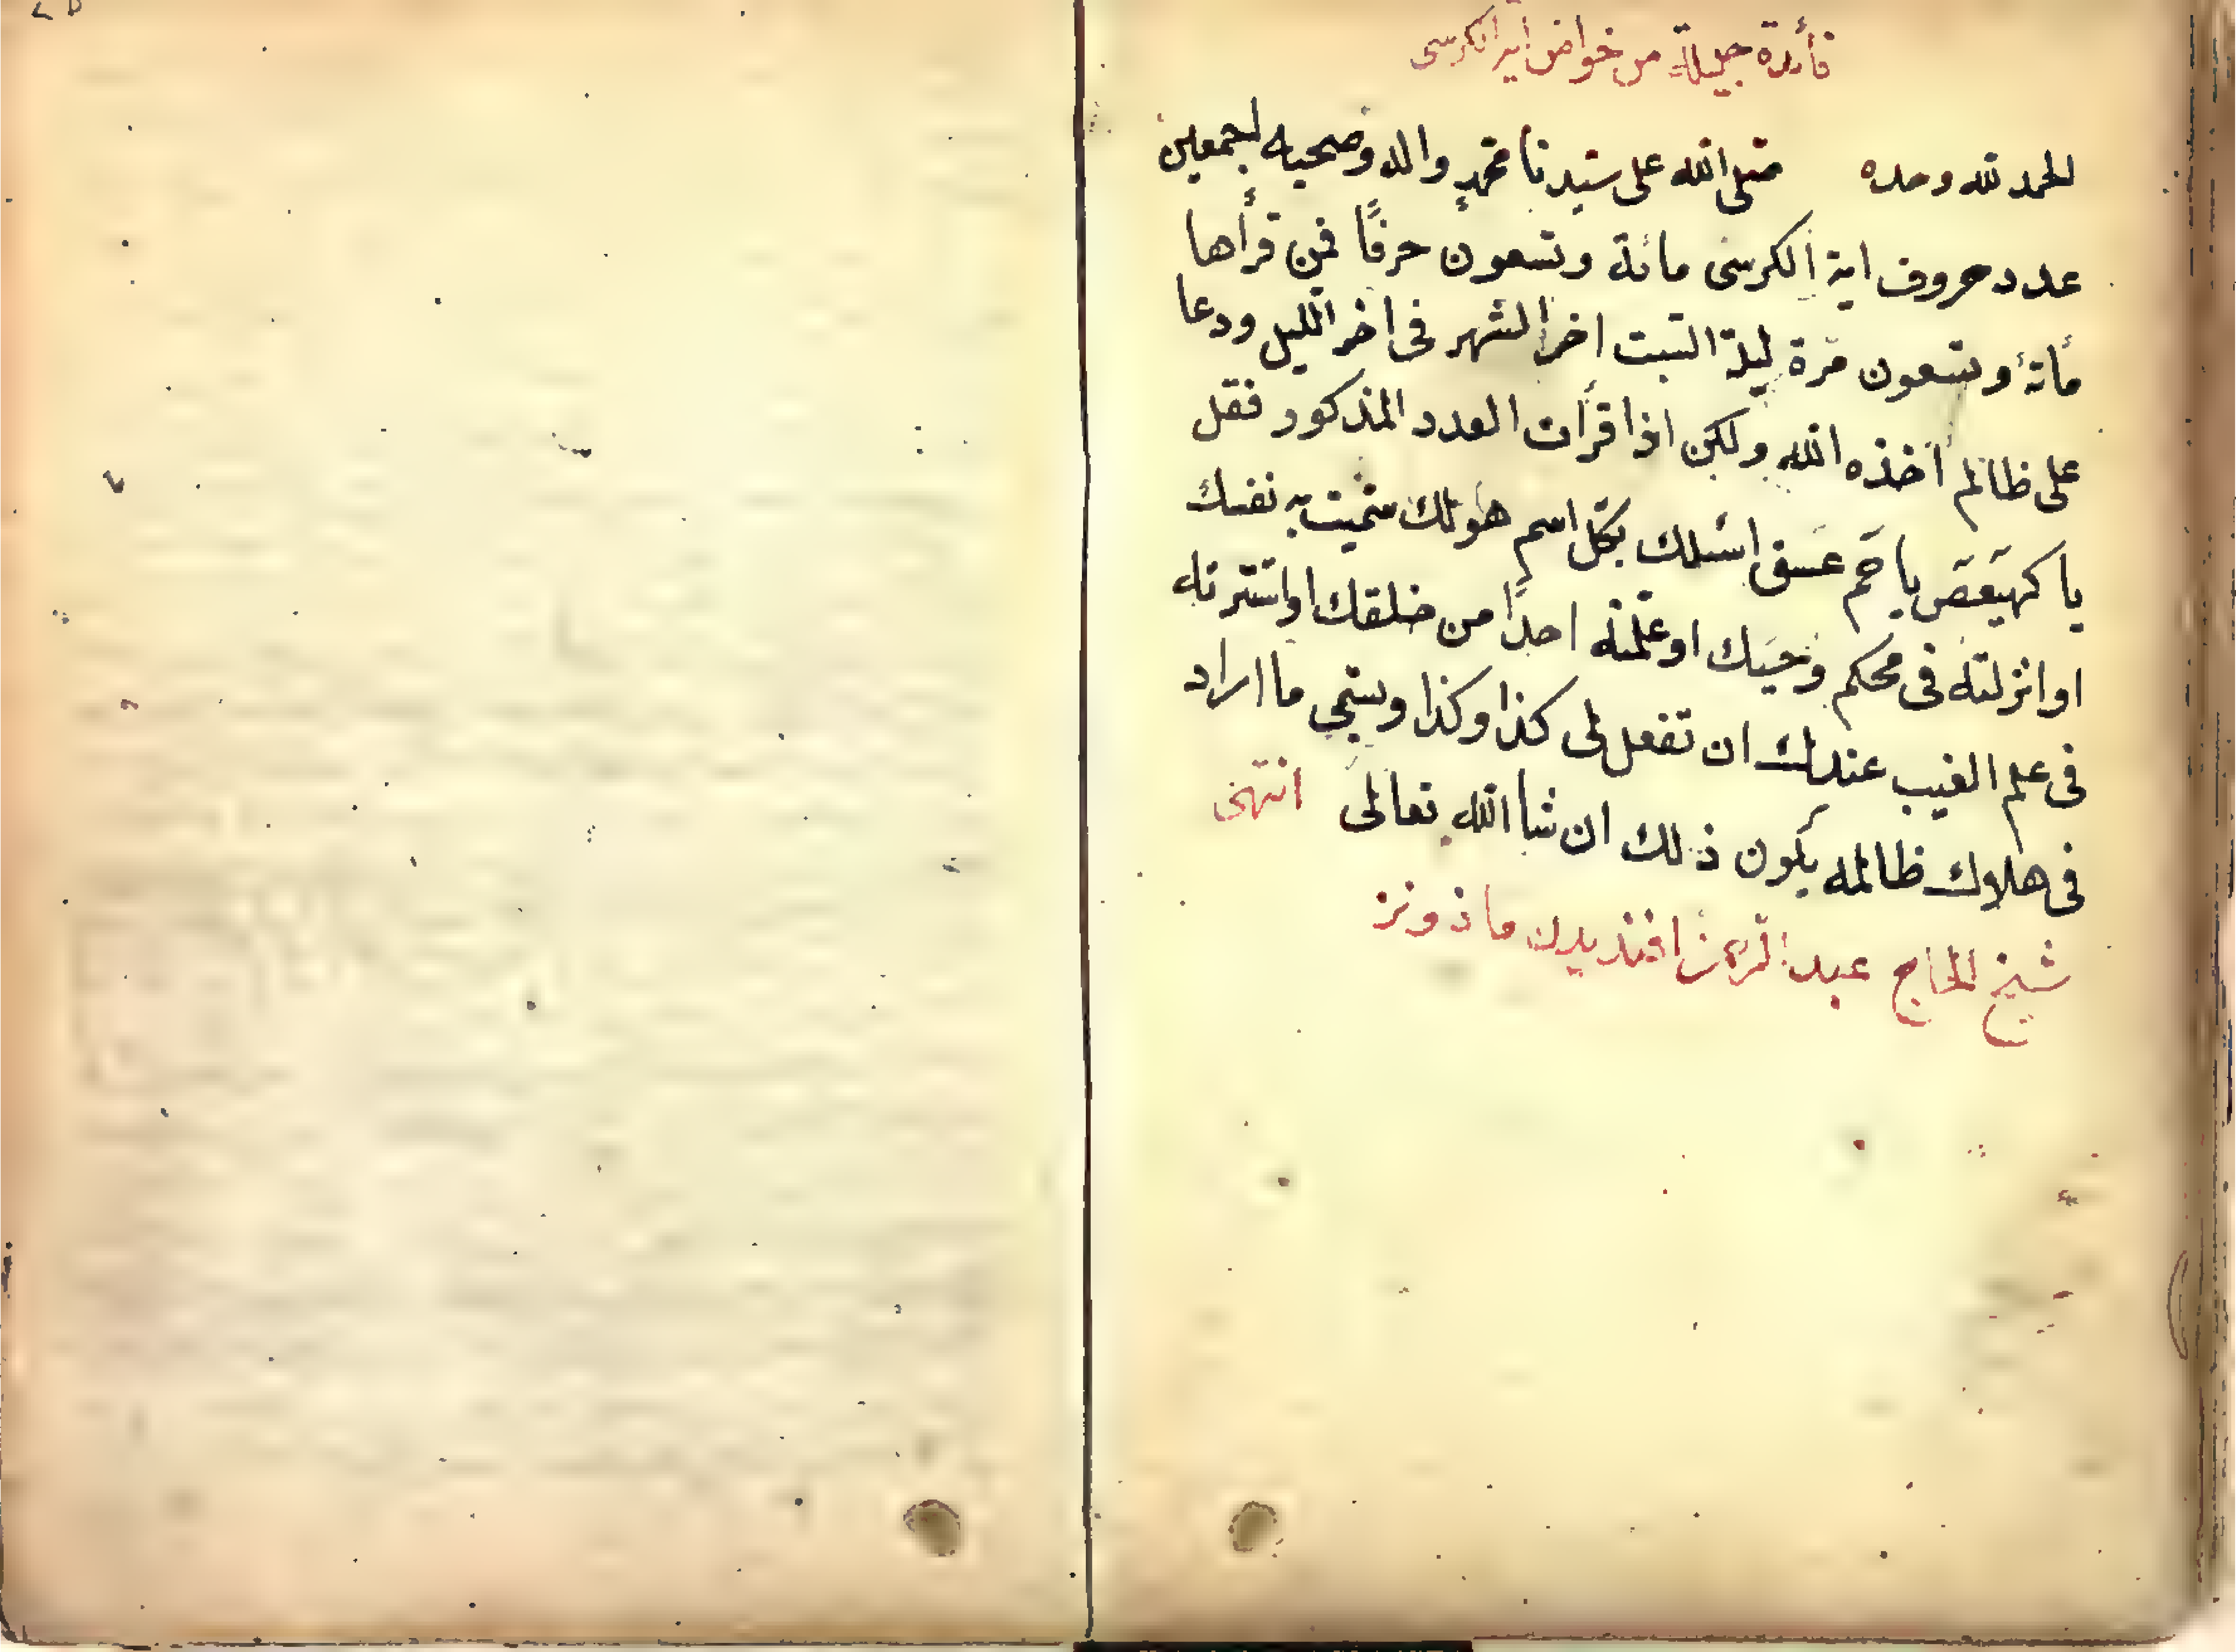 فأئدة جليلة من خواص اية الكرسى
الحمد لله وحده صلى الله على سيدنا محمدٍ واله وصحبه اجمعين
عدد حروف اية الكرسى مائة وتسعون حرفًا فمن قرأها
مأتة وتسعون مرة ليلة السبت اخر الشهر فى اخر الليل ودعا
على ظالم اخذه الله ولكن اذا قرأت العدد المذكور فقل
يا كهيعص يا حم عسق اسئلك بكل اسم هو لك سميت به نفسك
او انزلته فى محكم وحيك او علمته احدًا من خلقك او استترته
فى علم الغيب عندك ان تفعل لى كذا وكذا ويسمى ما اراد
فى هلاك ظالمه يكون ذلك ان شا الله تعالى انتهى
شيخ الحاج عبد الرحمن افنديدن ماذونز